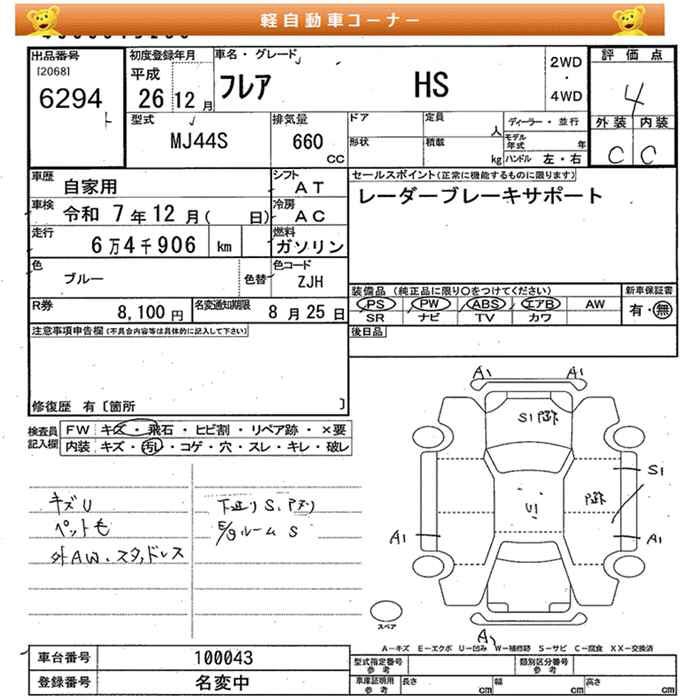 軽自動車コーナー
出品番号
[2068]
6294
初度登録年月
平成
26 12 月
車名・グレード
フレア HS
2WD
・
4WD
評価点
4
外装 内装
C C
型式
MJ44S
排気量
660
CC
ドア
形状
定員
人
積載
kg
ディーラー・並行
モデル年式 年
ハンドル 左・右
車歴
自家用
シフト
AT
車検
令和 7 年 12 月( 日)
冷房
AC
走行
6万4千906 km
燃料
ガソリン
色
ブルー
色替
色コード
ZJH
R券
8,100 円
名変通知期限
8 月 25 日
セールスポイント(正常に機能するものに限ります)
レーダーブレーキサポート
装備品 (純正品に限り○をつけてください)
PS PW ABS エアB AW
SR ナビ TV カワ
新車保証書
有・無
後日品
注意事項申告欄(不具合内容等は具体的に記入して下さい)
修復歴 有〔箇所 〕
検査員
記入欄
FW キズ・飛石・ヒビ割・リペア跡・×要
内装 キズ・汚レ・コゲ・穴・スレ・キレ・破レ
キズU
ペット毛
外AW、スタッドレス
下廻りS、
E/gルーム S
A1 A1
S1
S1
U1
A1 A1
A1
スペア
A-キズ E-エクボ U-凹み W-補修跡 S-サビ C-腐食 XX-交換済
車台番号
100043
登録番号
名変中
型式指定番号
参考
類別区分番号
参考
車庫証明用
参考
長さ cm
幅 cm
高さ cm